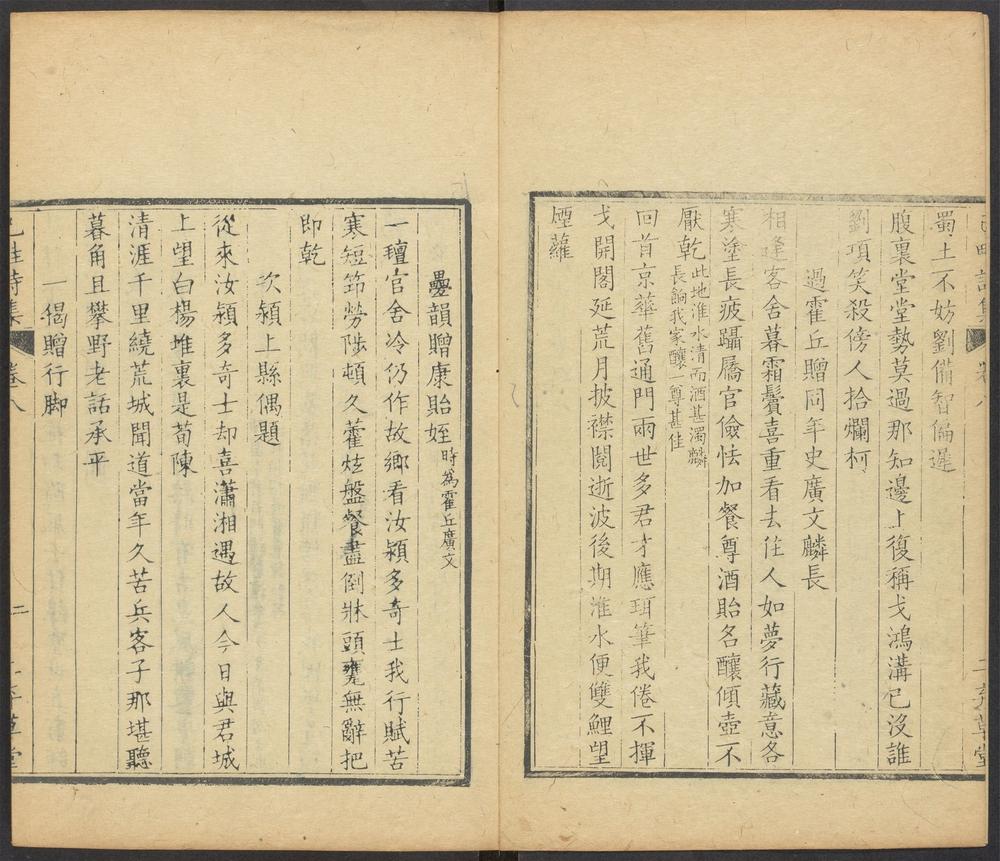 蜀土不妨劉備智偏遲
腹裏堂堂勢莫過那知邊上復稱戈鴻溝已沒誰
劉項笑殺傍人拾爛柯
過霍丘贈同年史廣文麟長
相逢客舍暮霜鬢喜重看去住人如夢行藏意各
寒塗長疲躡屩官儉怯加餐尊酒貽名釀傾壺不
厭乾此地淮水清而酒甚濁麟長餉我家釀一尊甚佳
回首京華舊通門兩世多君才應珥筆我倦不揮
戈開閣延荒月披襟閱逝波後期淮水便雙鯉望
煙蘿
疊韻贈康貽姪時為霍丘廣文
一氊官舍冷仍作故鄉看汝潁多奇士我行賦苦
寒短笻勞陟頓久藿炫盤餐盡倒牀頭甕無辭把
即乾
次潁上縣偶題
從來汝潁多奇士却喜瀟湘遇故人今日與君城
上望白楊堆裏是荀陳
清涯千里繞荒城聞道當年久苦兵客子那堪聽
暮角且攀野老話承平
一偈贈行脚
詩集
卷八
二
草堂